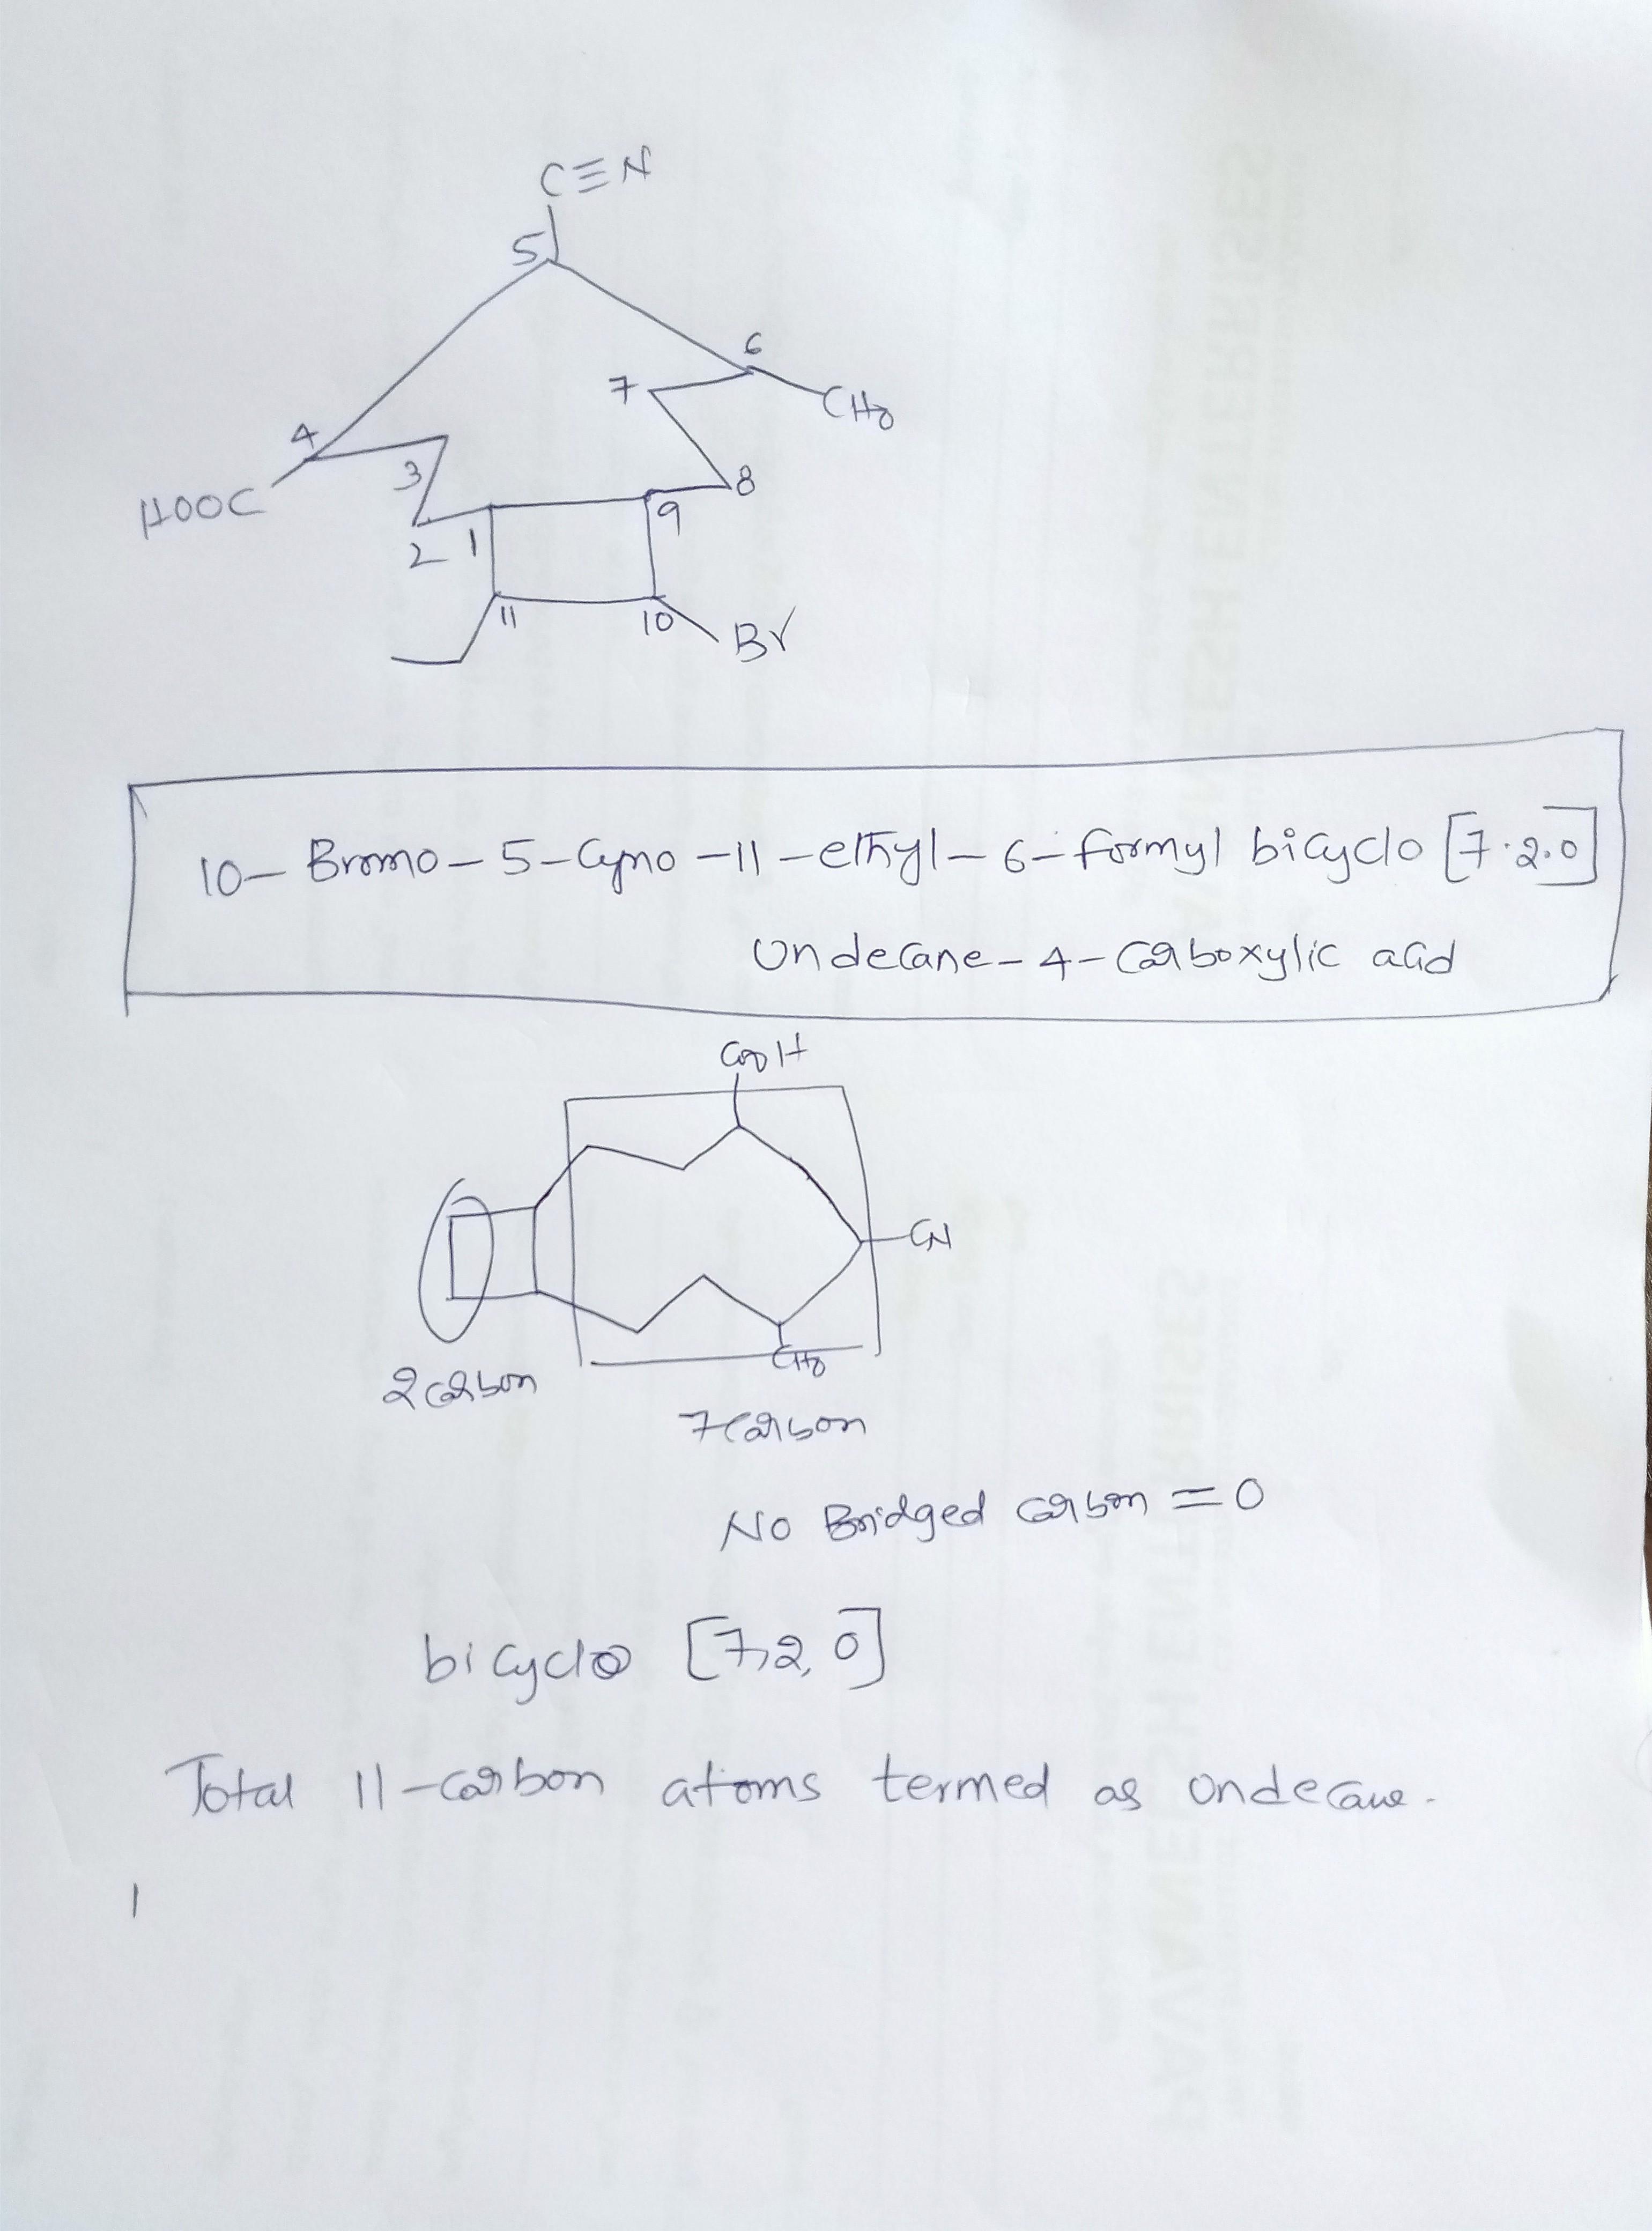 C≡N
5
6
7
CHO
4
3
8
HOOC
9
2 1
11
10
Br
10- Bromo-5-Cyno-11-ethyl-6-formyl bicyclo [7.2.0]
Undecane-4-Carboxylic acid
COOH
CN
CHO
2 carbon
7 carbon
No Bridged carbon = 0
bicyclo [7,2,0]
Total 11-carbon atoms termed as Undecane.
1